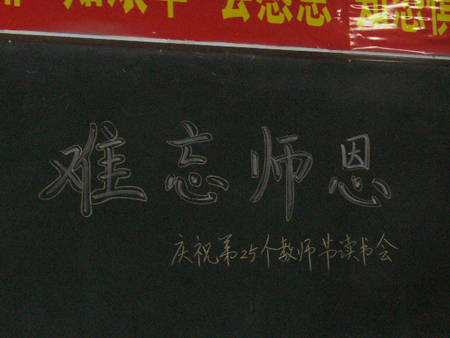 难忘师恩
庆祝第25个教师节读书会